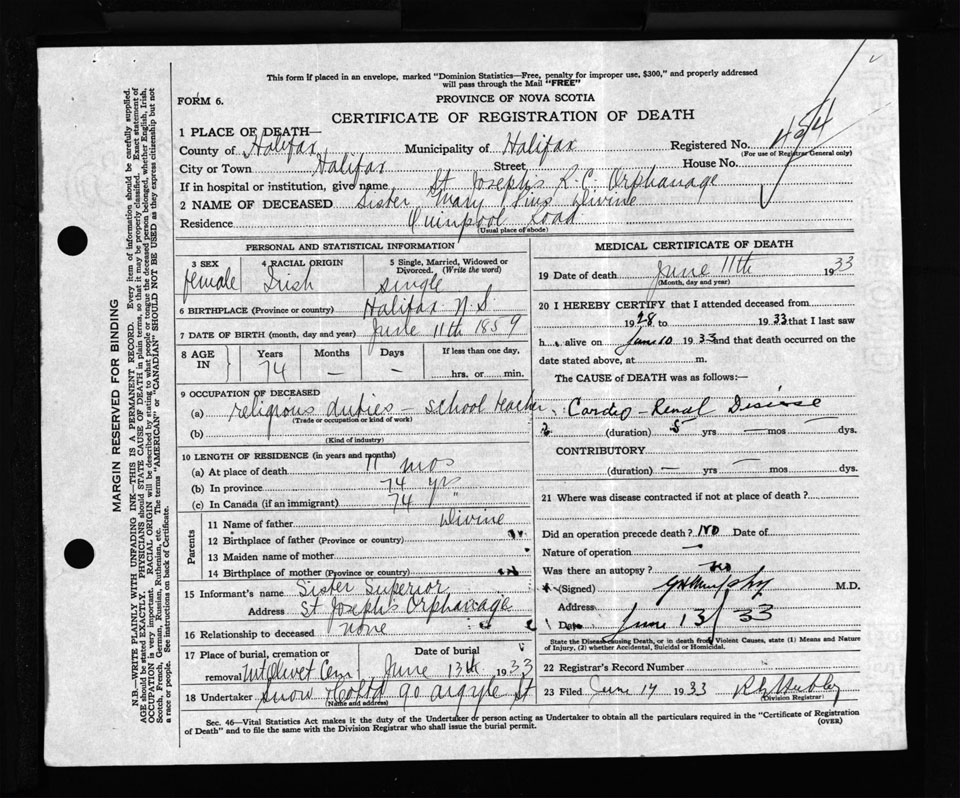 This form if placed in an envelope, marked "Dominion Statistics—Free, penalty for improper use, $300," and properly addressed
will pass through the Mail "FREE"
FORM 6.
PROVINCE OF NOVA SCOTIA
CERTIFICATE OF REGISTRATION OF DEATH
1 PLACE OF DEATH—
County of Halifax Municipality of Halifax Registered No. 424
(For use of Registrar General only)
City or Town Halifax Street House No.
If in hospital or institution, give name St Josephs R. C. Orphanage
2 NAME OF DECEASED Sister Mary Pius Divine
Residence Quinpool Road
(Usual place of abode)
PERSONAL AND STATISTICAL INFORMATION
3 SEX 4 RACIAL ORIGIN 5 Single, Married, Widowed or
Divorced. (Write the word)
female Irish single
6 BIRTHPLACE (Province or country) Halifax N.S.
7 DATE OF BIRTH (month, day and year) June 11th 1859
8 AGE IN Years Months Days If less than one day,
74 — — hrs. or min.
9 OCCUPATION OF DECEASED
(a) religious duties - school teacher
(Trade or occupation or kind of work)
(b)
(Kind of industry)
10 LENGTH OF RESIDENCE (in years and months)
(a) At place of death 11 mos
(b) In province 74 yrs
(c) In Canada (if an immigrant) 74 "
Parents
11 Name of father Divine
12 Birthplace of father (Province or country)
13 Maiden name of mother
14 Birthplace of mother (Province or country)
15 Informant's name Sister Superior
Address St Joseph's Orphanage
16 Relationship to deceased none
17 Place of burial, cremation or Date of burial
removal Mt Olivet Cem June 13th 1933
18 Undertaker Snow & Co Ltd 90 Argyle St
(Name and address)
MEDICAL CERTIFICATE OF DEATH
19 Date of death June 11th 1933
(Month, day and year)
20 I HEREBY CERTIFY that I attended deceased from
1928 to 1933 that I last saw
h alive on June 10 1933 and that death occurred on the
date stated above, at m.
The CAUSE OF DEATH was as follows:—
Cardio-Renal Disease
(duration) 5 yrs — mos — dys.
CONTRIBUTORY
(duration) — yrs — mos dys.
21 Where was disease contracted if not at place of death?
Did an operation precede death? NO Date of
Nature of operation —
Was there an autopsy? No
(Signed) G H Murphy M.D.
Address
Date June 13/33
State the Disease causing Death, or in death from Violent Causes, state (1) Means and Nature
of Injury, (2) whether Accidental, Suicidal or Homicidal.
22 Registrar's Record Number
23 Filed June 14 1933
(Division Registrar)
Sec. 46—Vital Statistics Act makes it the duty of the Undertaker or person acting as Undertaker to obtain all the particulars required in the "Certificate of Registration
of Death" and to file the same with the Division Registrar who shall issue the burial permit. (OVER)
MARGIN RESERVED FOR BINDING
N.B.—WRITE PLAINLY WITH UNFADING INK—THIS IS A PERMANENT RECORD. Every item of information should be carefully supplied.
AGE should be stated EXACTLY. PHYSICIANS should STATE CAUSE OF DEATH in plain terms, so that it may be properly classified. Exact statement of
OCCUPATION is very important. RACIAL ORIGIN will be described by stating to what people or tongue the deceased person belonged, whether English, Irish,
Scotch, French, German, Russian, Ruthenian, etc. The terms "AMERICAN" or "CANADIAN" SHOULD NOT BE USED as they express citizenship but not
a race or people. See instructions on back of Certificate.